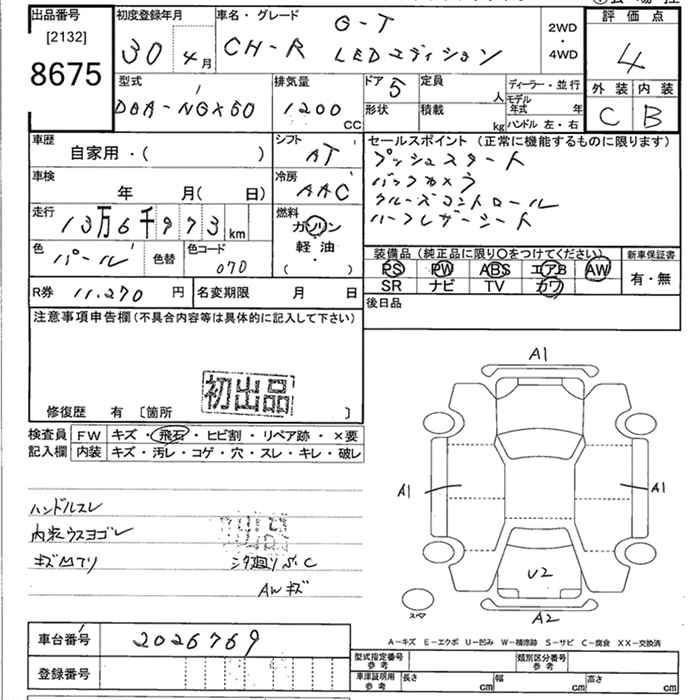 出品番号 [2132] 8675
初度登録年月 30 4月
車名・グレード G-T
CH-R LEDエディション
2WD・4WD
評価点 4
外装 C 内装 B
型式 DBA-NGX50
排気量 1200cc
ドア 5
形状
定員 人
積載 kg
ディーラー・並行
モデル年式 年
ハンドル 左・右
車歴 自家用・( )
シフト AT
車検 年 月( 日)
冷房 AAC
走行 13万6千973km
燃料 ガソリン
軽油
( )
色 パール 色替 色コード 070
R券 11,270円 名変期限 月 日
セールスポイント(正常に機能するものに限ります)
プッシュスタート
バックカメラ
クルーズコントロール
ハーフレザーシート
装備品(純正品に限り○をつけてください)
PS PW ABS エアB AW
SR ナビ TV カワ
新車保証書
有・無
後日品
注意事項申告欄(不具合内容等は具体的に記入して下さい)
初出品
修復歴 有 [箇所 ]
検査員記入欄
FW キズ・飛石・ヒビ割・リペア跡・×要
内装 キズ・汚レ・コゲ・穴・スレ・キレ・破レ
ハンドルスレ
内装ウスヨゴレ
キズ凹アリ
シタ廻りS、C
AWキズ
A1
A1
A1
U2
A2
スペア
A-キズ E-エクボ U-凹み W-補修跡 S-サビ C-腐食 XX-交換済
車台番号 2026769
登録番号
型式指定番号 参考
類別区分番号 参考
車庫証明用 参考
長さ cm 幅 cm 高さ cm